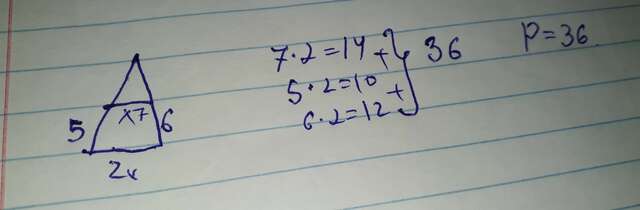 7·2=14 +
5·2=10 +
6·2=12
36
P=36.
5
x7
6
2x